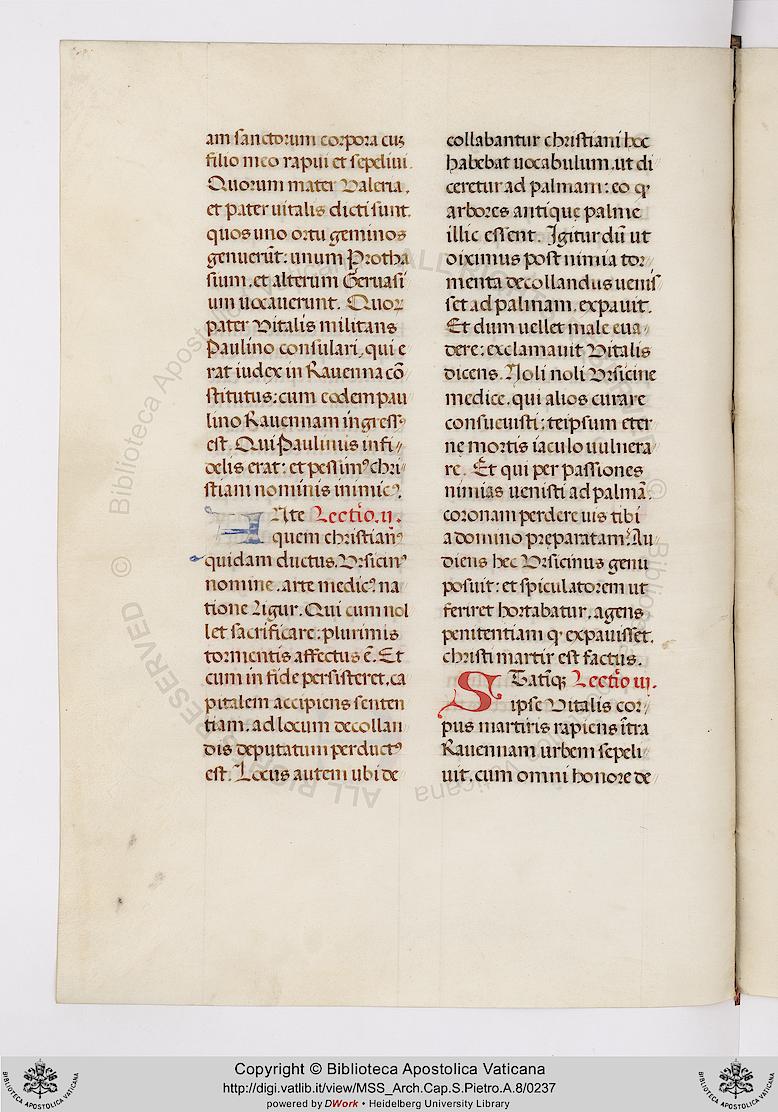 am sanctorum corpora cuꝫ
filio meo rapui et sepelivi.
Quorum mater Valeria,
et pater uitalis dicti sunt.
quos uno ortu geminos
genuerūt: unum Protha
sium, et alterum Geruasi
um uocauerunt. Quoꝝ
pater Vitalis militans
Paulino consulari, qui e
rat iudex in Rauenna cō
stitutus: cum eodem pau
lino Rauennam ingressꝰ
est. Qui Paulinus infi
delis erat: et pessimꝰ chri
stiani nominis inimicꝰ.
ANte Lectio. ij.
quem christianꝰ
quidam ductus, Vrsicinꝰ
nomine, arte medicꝰ na
tione Ligur. Qui cum nol
let sacrificare: plurimis
tormentis affectus ē. Et
cum in fide persisteret, ca
pitalem accipiens senten
tiam, ad locum decollan
dis deputatum perductꝰ
est. Locus autem ubi de
collabantur christiani hoc
habebat uocabulum, ut di
ceretur ad palmam: eo ꝙ
arbores antique palme
illic essent. Igitur dū ut
diximus post nimia tor
menta decollandus uenis
set ad palmam, expauit.
Et dum uellet male eua
dere: exclamauit Vitalis
dicens. Noli noli Vrsicine
medice, qui alios curare
consueuisti: teipsum eter
ne mortis iaculo uulnera
re. Et qui per passiones
nimias uenisti ad palmā,
coronam perdere uis tibi
a domino preparatam? Au
diens hec Vrsicinus genu
posuit: et spiculatorem ut
feriret hortabatur, agens
penitentiam ꝙ expauisset,
christi martir est factus.
STatīqꝫ Lectio iij.
ipse Vitalis cor
pus martiris rapiens ītra
Rauennam urbem sepeli
uit, cum omni honore de
Copyright © Biblioteca Apostolica Vaticana
http://digi.vatlib.it/view/MSS_Arch.Cap.S.Pietro.A.8/0237
powered by DWork • Heidelberg University Library